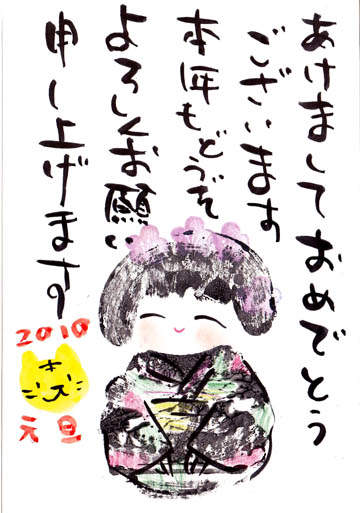 あけましておめでとう
ございます
本年もどうぞ
よろしくお願い
申し上げます
2010
元旦